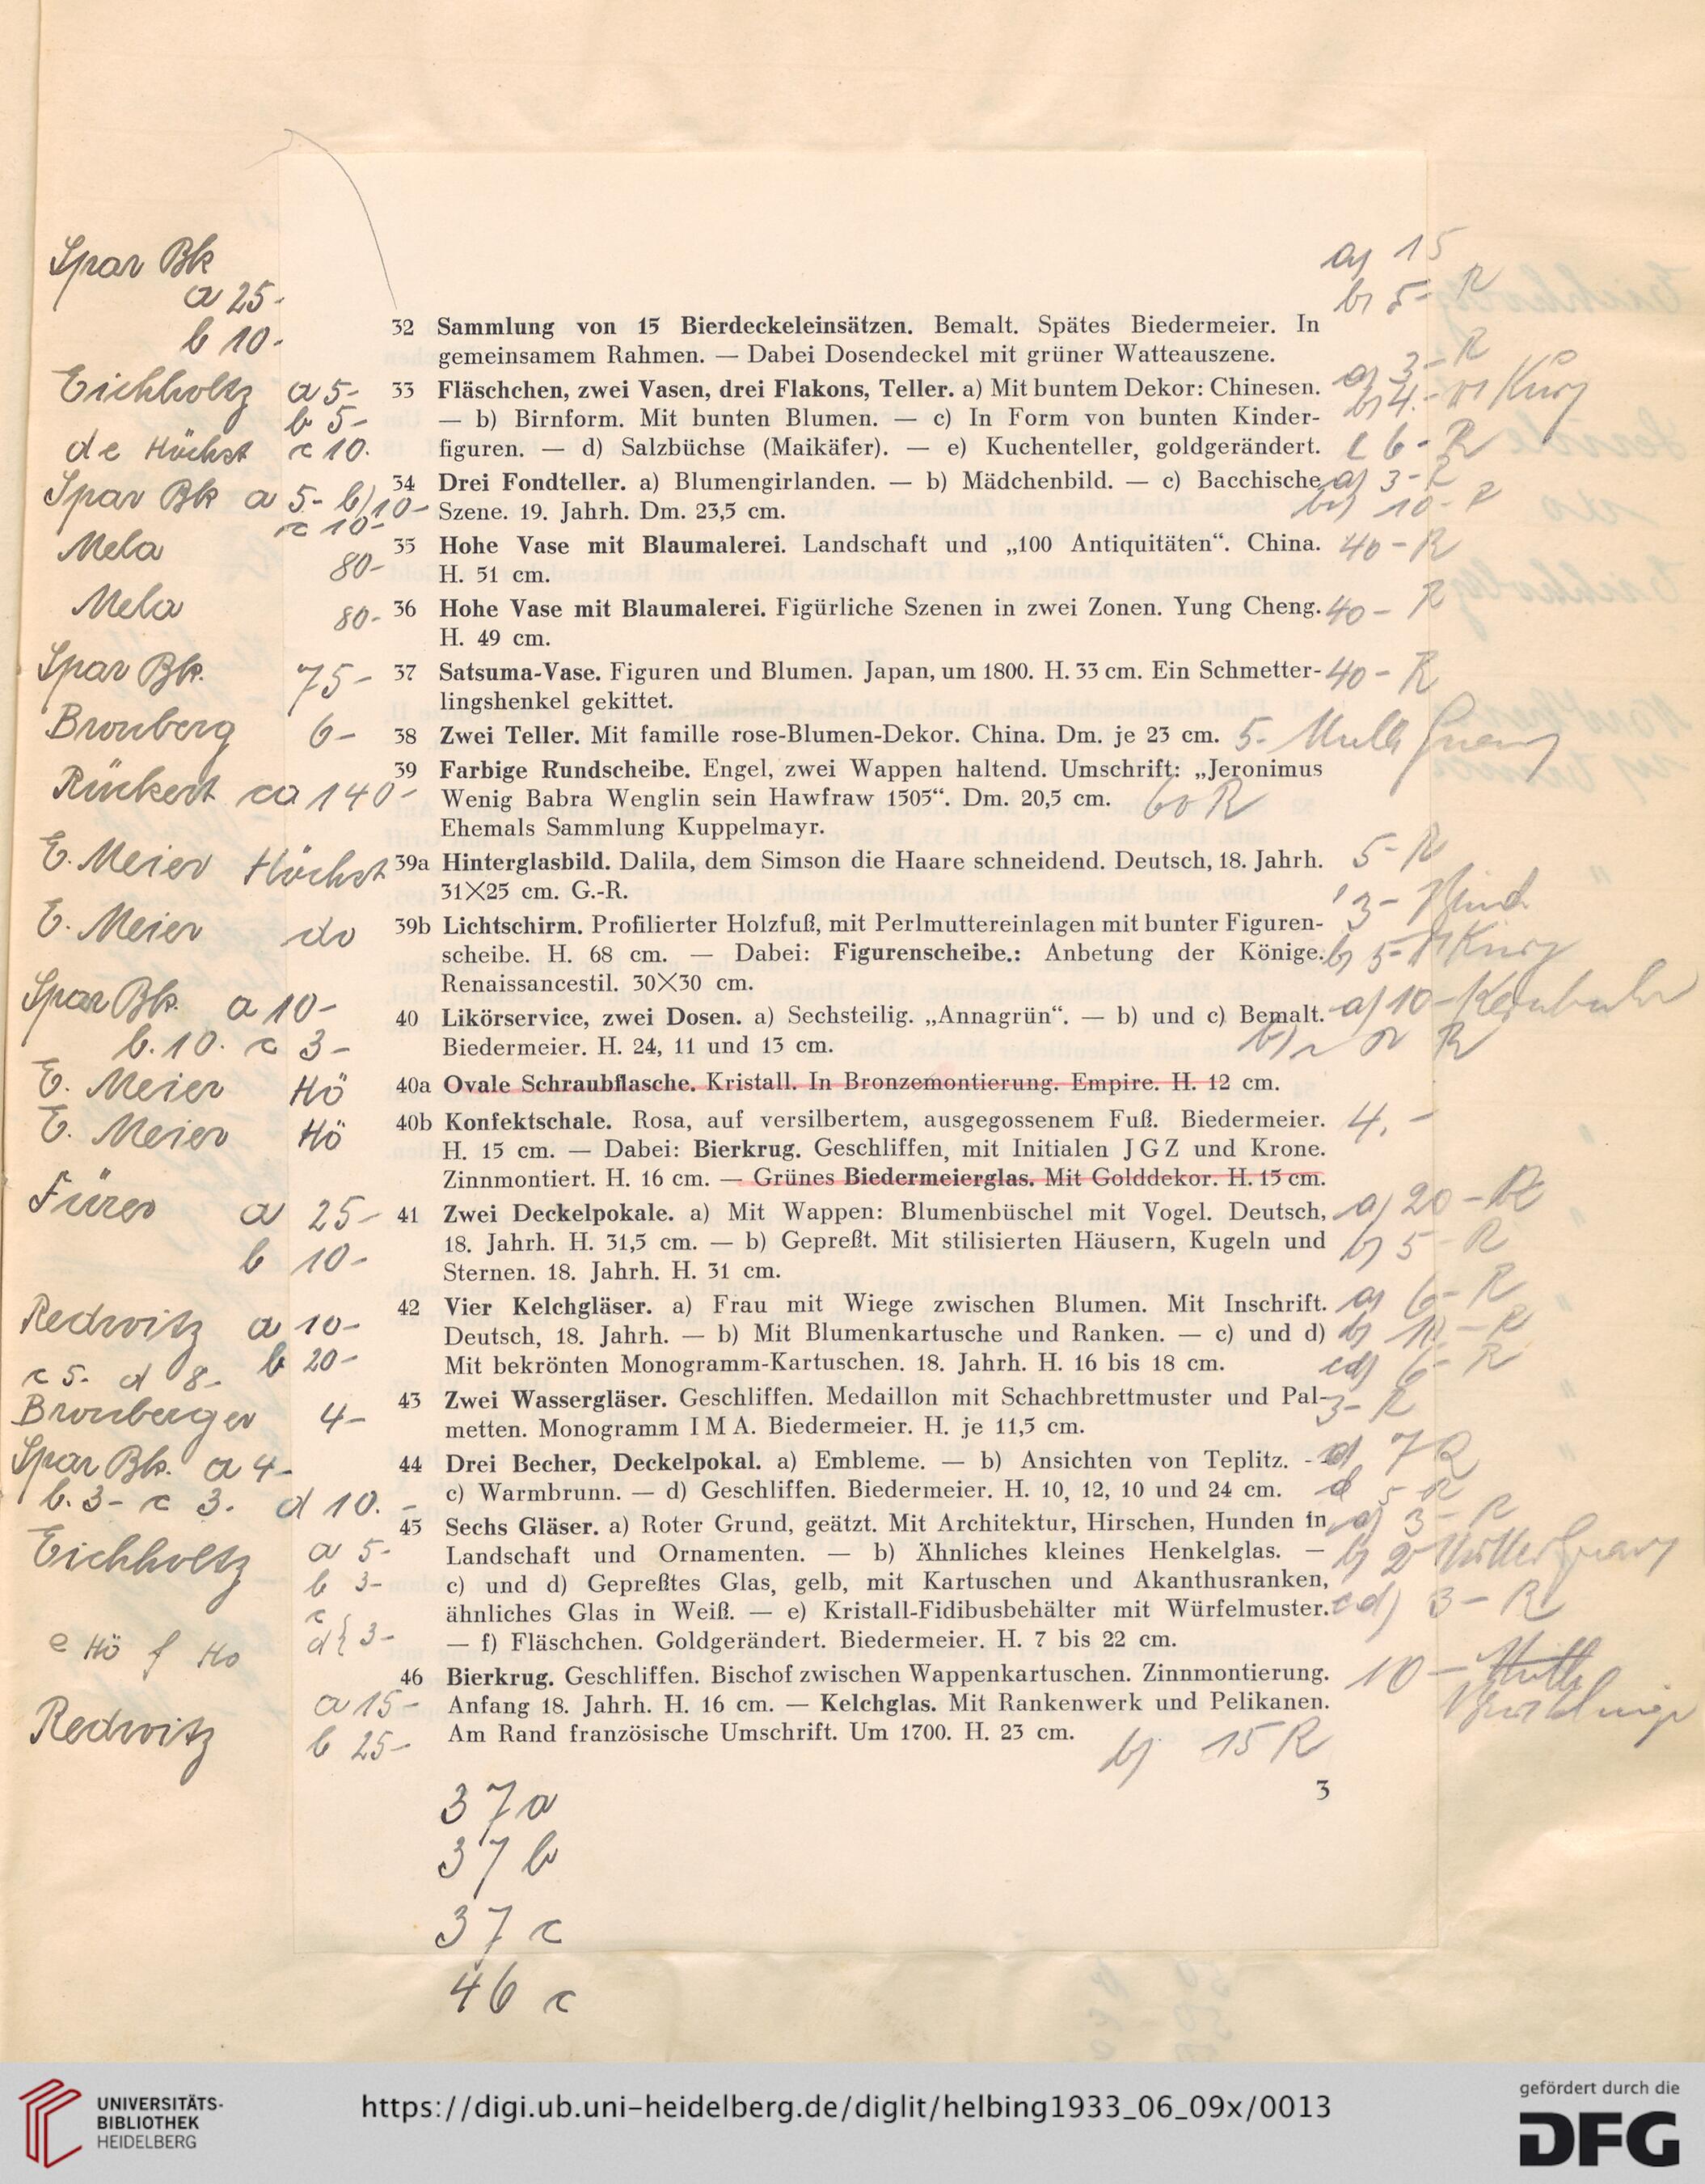 Spar Bk
a 25-
b 10-
a) 15
b) 5- R
32 Sammlung von 15 Bierdeckeleinsätzen. Bemalt. Spätes Biedermeier. In
gemeinsamem Rahmen. — Dabei Dosendeckel mit grüner Watteauszene.
Eichholtz a 5-
b 5-
de Höchst c 10.
33 Fläschchen, zwei Vasen, drei Flakons, Teller. a) Mit buntem Dekor: Chinesen.
— b) Birnform. Mit bunten Blumen. — c) In Form von bunten Kinder-
figuren. — d) Salzbüchse (Maikäfer). — e) Kuchenteller, goldgerändert.
a) 3- R
b) 4.-
c 6- R
Spar Bk a 5- b) 10-
c 10-
34 Drei Fondteller. a) Blumengirlanden. — b) Mädchenbild. — c) Bacchische
Szene. 19. Jahrh. Dm. 23,5 cm.
a) 3- R
10- R
Mela 80-
35 Hohe Vase mit Blaumalerei. Landschaft und „100 Antiquitäten“. China.
H. 51 cm.
40- R
Mela 80-
36 Hohe Vase mit Blaumalerei. Figürliche Szenen in zwei Zonen. Yung Cheng.
H. 49 cm.
40- R
Spar Bk. 75-
37 Satsuma-Vase. Figuren und Blumen. Japan, um 1800. H. 33 cm. Ein Schmetter-
lingshenkel gekittet.
40- R
Bronberg 6-
38 Zwei Teller. Mit famille rose-Blumen-Dekor. China. Dm. je 23 cm.
5-
Rückert ca 140-
39 Farbige Rundscheibe. Engel, zwei Wappen haltend. Umschrift: „Jeronimus
Wenig Babra Wenglin sein Hawfraw 1505“. Dm. 20,5 cm.
Ehemals Sammlung Kuppelmayr.
60 R
E. Meier Höchst
39a Hinterglasbild. Dalila, dem Simson die Haare schneidend. Deutsch, 18. Jahrh.
31×25 cm. G.-R.
5- R
E. Meier do
39b Lichtschirm. Profilierter Holzfuß, mit Perlmuttereinlagen mit bunter Figuren-
scheibe. H. 68 cm. — Dabei: Figurenscheibe.: Anbetung der Könige.
Renaissancestil. 30×30 cm.
3-
b) 5-
Spar Bk. a 10-
b. 10. c 3-
40 Likörservice, zwei Dosen. a) Sechsteilig. „Annagrün“. — b) und c) Bemalt.
Biedermeier. H. 24, 11 und 13 cm.
a) 10-
R
E. Meier Hö
40a Ovale Schraubflasche. Kristall. In Bronzemontierung. Empire. H. 12 cm.
E. Meier Hö
40b Konfektschale. Rosa, auf versilbertem, ausgegossenem Fuß. Biedermeier.
H. 15 cm. — Dabei: Bierkrug. Geschliffen, mit Initialen J G Z und Krone.
Zinnmontiert. H. 16 cm. — Grünes Biedermeierglas. Mit Golddekor. H. 15 cm.
4.-
Fürer a 25-
b 10-
41 Zwei Deckelpokale. a) Mit Wappen: Blumenbüschel mit Vogel. Deutsch,
18. Jahrh. H. 31,5 cm. — b) Gepreßt. Mit stilisierten Häusern, Kugeln und
Sternen. 18. Jahrh. H. 31 cm.
a) 20- R
b) 5- R
Redwitz a 10-
b 20-
c 5- d 8-
42 Vier Kelchgläser. a) Frau mit Wiege zwischen Blumen. Mit Inschrift.
Deutsch, 18. Jahrh. — b) Mit Blumenkartusche und Ranken. — c) und d)
Mit bekrönten Monogramm-Kartuschen. 18. Jahrh. H. 16 bis 18 cm.
a) 6- R
b) 10- R
cd) 6- R
Bronberger 4-
43 Zwei Wassergläser. Geschliffen. Medaillon mit Schachbrettmuster und Pal-
metten. Monogramm I M A. Biedermeier. H. je 11,5 cm.
3- R
Spar Bk. a 4-
b. 3- c 3. d 10.-
44 Drei Becher, Deckelpokal. a) Embleme. — b) Ansichten von Teplitz. -
c) Warmbrunn. — d) Geschliffen. Biedermeier. H. 10, 12, 10 und 24 cm.
7 R
d 5- R
Eichholtz a 5-
b 3-
c
d { 3-
e Hö f Hö
45 Sechs Gläser. a) Roter Grund, geätzt. Mit Architektur, Hirschen, Hunden in
Landschaft und Ornamenten. — b) Ähnliches kleines Henkelglas. —
c) und d) Gepreßtes Glas, gelb, mit Kartuschen und Akanthusranken,
ähnliches Glas in Weiß. — e) Kristall-Fidibusbehälter mit Würfelmuster.
— f) Fläschchen. Goldgerändert. Biedermeier. H. 7 bis 22 cm.
a) 3- R
b) 2
cd) 3- R
Redwitz a 15-
b 25-
46 Bierkrug. Geschliffen. Bischof zwischen Wappenkartuschen. Zinnmontierung.
Anfang 18. Jahrh. H. 16 cm. — Kelchglas. Mit Rankenwerk und Pelikanen.
Am Rand französische Umschrift. Um 1700. H. 23 cm.
10-
b) 15 R
3
37 a
37 b
37 c
46 c
UNIVERSITÄTS-
BIBLIOTHEK
HEIDELBERG
https://digi.ub.uni-heidelberg.de/diglit/helbing1933_06_09x/0013
gefördert durch die
DFG